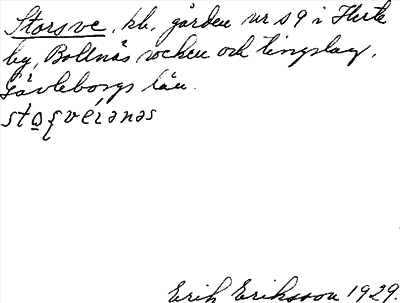 Storsve, kb, gården nr 59 i Herte
by, Bollnäs socken och tingslag,
Gävleborgs län.
Erik Eriksson 1929.